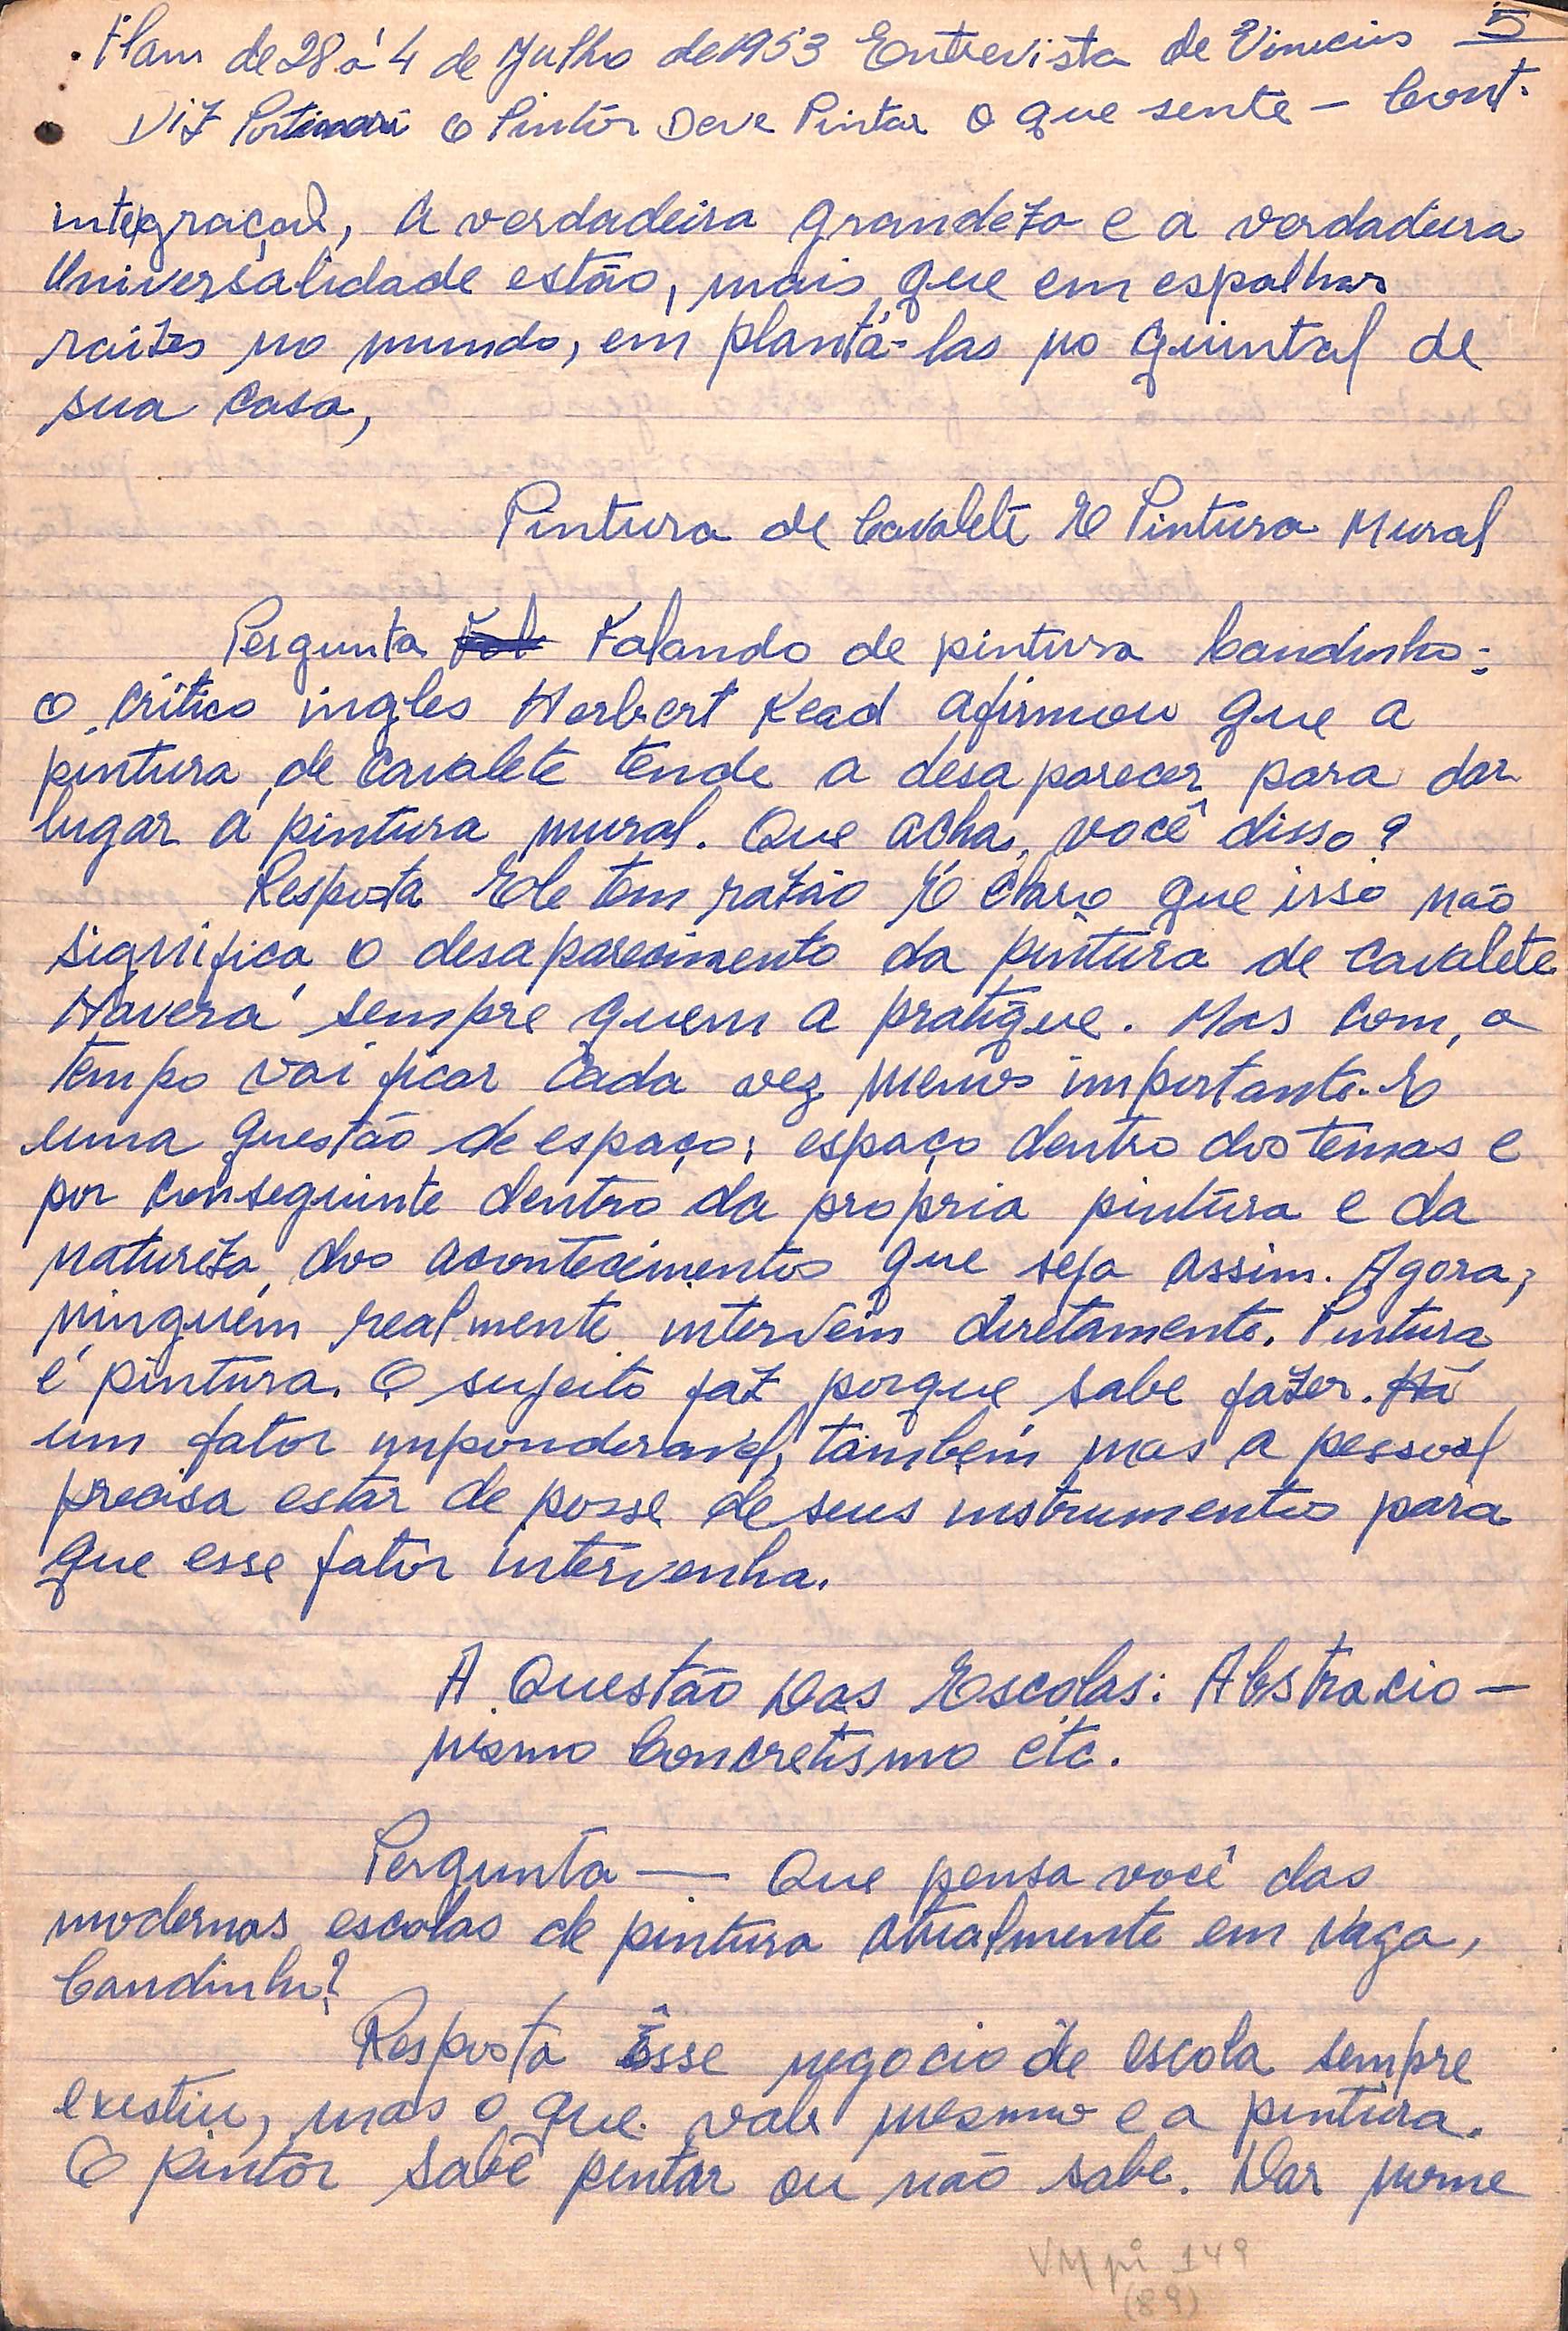 Flam de 28 á 4 de Julho de 1953 Entrevista de Vinicius 5
Diz Portinari O Pintôr Deve Pintar o que sente — Cont.
integraçaõ, A verdadeira grandeza e a verdadeira
Universalidade estão, mais que em espalhar
raizes no mundo, em plantá-las no quintal de
sua casa,
Pintura de Cavalete E Pintura Mural
Pergunta Fal Falando de pintura Candinho:
o critico ingles Herbert Read afirmou que a
pintura de cavalete tende a desaparecer para dar
lugar á pintura mural. Que acha, você disso?
Resposta Ele tem razão É claro que isso não
significa o desaparecimento da pintura de cavalete
Haverá sempre quem a pratique. Mas com, o
tempo vai ficar cada vez menos importante. E
uma questão de espaço: espaço dentro dos temas e
por conseguinte dentro da propria pintura e da
natureza dos acontecimentos que seja assim. Agora,
ninguém realmente intervem diretamente. Pintura
é pintura. O sujeito faz porque sabe fazer. Há
um fator imponderavel, também mas a pessoal
precisa estar de posse de seus instrumentos para
que esse fator intervenha.
A Questão Das Escolas: Abstracio-
nismo Concretismo etc.
Pergunta — Que pensa você das
modernas escolas de pintura atualmente em voga,
Candinho?
Resposta Êsse negocio de escola sempre
existiu, mas o que vale mesmo e a pintura.
O pintôr sabe pintar ou não sabe. Dar nome
VM pi 149
(89)